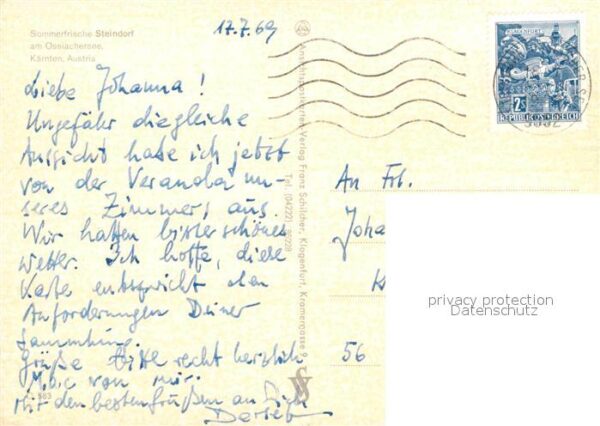 Sommerfrische Steindorf
am Ossiachersee,
Kärnten, Austria
17.7.69
Liebe Johanna!
Ungefähr die gleiche
Aussicht habe ich jetzt
von der Veranda un-
seres Zimmers aus.
Wir hatten bisher schönes
Wetter. Ich hoffe, diese
Karte entspricht den
Anforderungen Deiner
Sammlung.
Grüße bitte recht herzlich
von mir.
Mit den besten Grüßen an Dich
Ansichtspostkarten-Verlag Franz Schilcher, Klagenfurt, Kramergasse 9
Tel. (04222)
KLAGENFURT
2 S
REPUBLIK ÖSTERREICH
An Frl.
Joha
56
privacy protection
Datenschutz